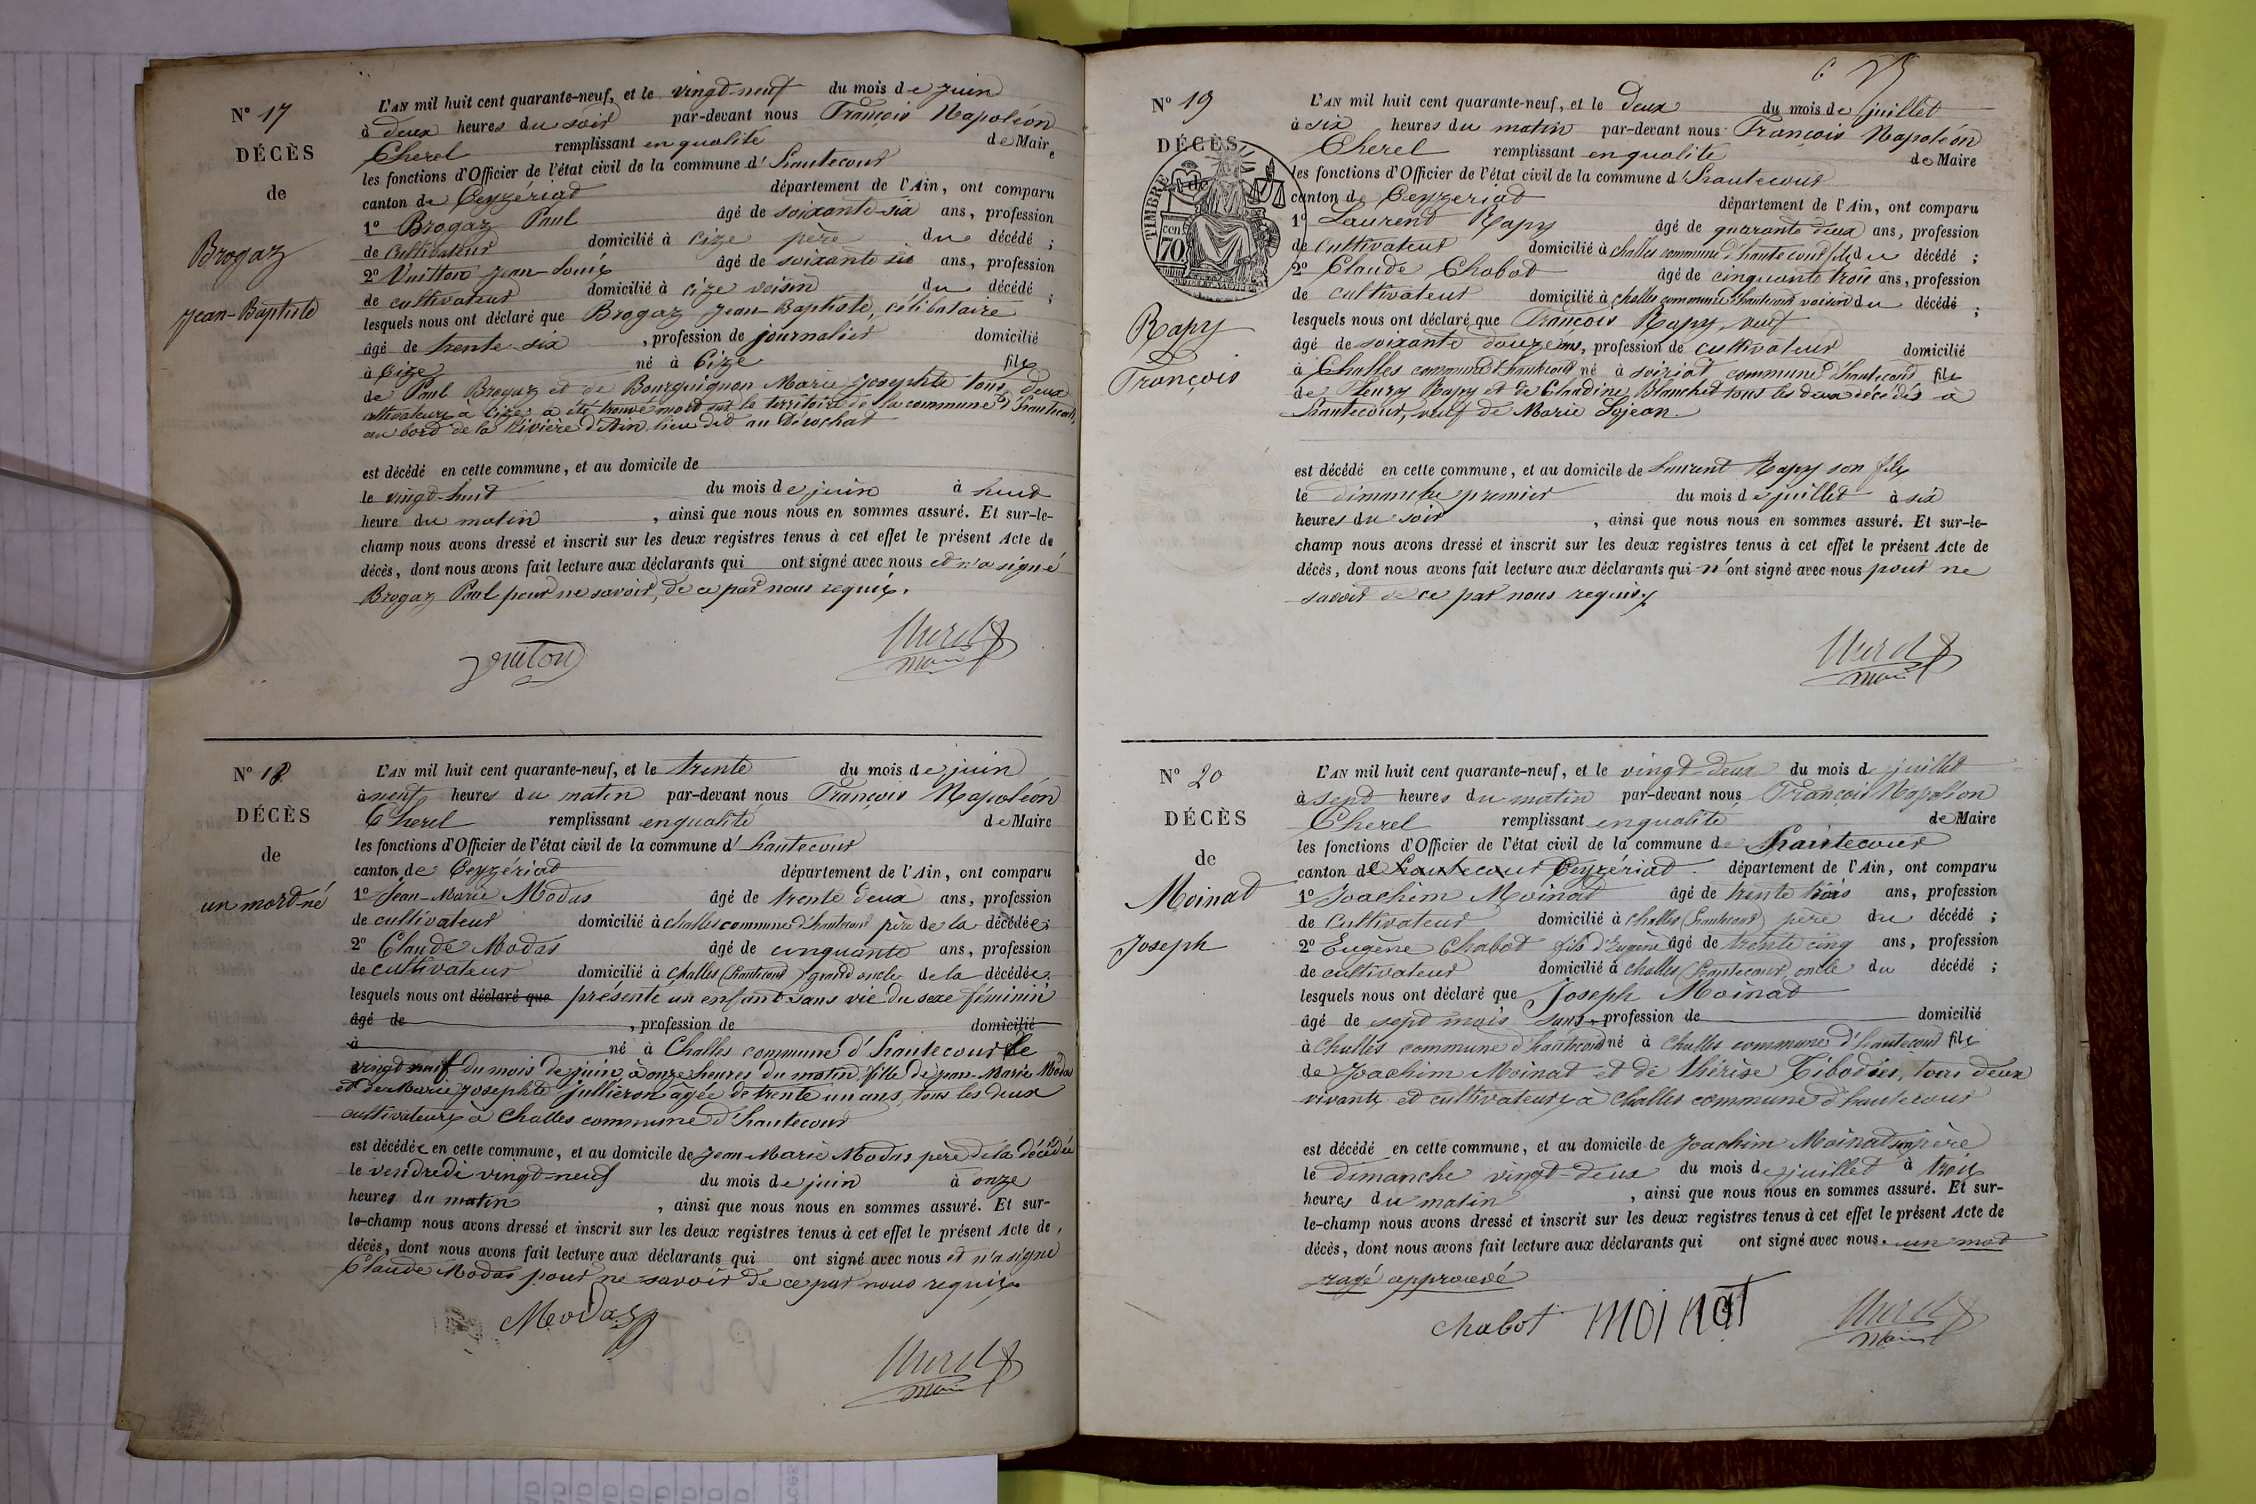 N° 17
DÉCÈS
de
Brogaz
Jean-Baptiste
L'AN mil huit cent quarante-neuf, et le vingt-neuf du mois de juin
à deux heures du soir par-devant nous François Napoléon
Cherel remplissant en qualité de Maire
les fonctions d'Officier de l'état civil de la commune d'hautecour
canton de Ceyzériat département de l'Ain, ont comparu
1° Brogaz Paul âgé de soixante-six ans, profession
de cultivateur domicilié à Cize père du décédé ;
2° Jean-Louis âgé de soixante six ans, profession
de cultivateur domicilié à Cize voisin du décédé ;
lesquels nous ont déclaré que Brogaz Jean-Baptiste, célibataire
âgé de trente six , profession de journalier domicilié
à Cize né à Cize fils
de Paul Brogaz et de Bourguignon Marie Josephte tous deux
cultivateurs à Cize a été trouvé mort sur le territoire de la commune d'hautecour,
au bord de la rivière d'Ain lieu dit au
est décédé en cette commune, et au domicile de
le vingt-huit du mois de juin à huit
heure du matin , ainsi que nous nous en sommes assuré. Et sur-le-
champ nous avons dressé et inscrit sur les deux registres tenus à cet effet le présent Acte de
décès, dont nous avons fait lecture aux déclarants qui ont signé avec nous et n'a signé
Brogaz Paul pour ne savoir, de ce par nous requis.
Cherel
maire
N° 18
DÉCÈS
de
un mort-né
L'AN mil huit cent quarante-neuf, et le trente du mois de juin
à neuf heures du matin par-devant nous François Napoléon
Cherel remplissant en qualité de Maire
les fonctions d'Officier de l'état civil de la commune d'hautecour
canton de Ceyzériat département de l'Ain, ont comparu
1° Jean-Marie Modas âgé de trente deux ans, profession
de cultivateur domicilié à challes commune d'hautecour père de la décédée ;
2° Claude Modas âgé de cinquante ans, profession
de cultivateur domicilié à challes (hautecour) grand oncle de la décédée
lesquels nous ont déclaré que présenté un enfant sans vie du sexe féminin
âgé de , profession de domicilié
à né à Challes commune d'hautecour le
vingt neuf du mois de juin à onze heures du matin fille de jean-Marie Modas
et de Marie josephte Jullieron âgée de trente un ans, tous les deux
cultivateurs à Challes commune d'hautecour
est décédée en cette commune, et au domicile de Jean Marie Modas père de la décédée
le vendredi vingt-neuf du mois de juin à onze
heures du matin , ainsi que nous nous en sommes assuré. Et sur-
le-champ nous avons dressé et inscrit sur les deux registres tenus à cet effet le présent Acte de
décès, dont nous avons fait lecture aux déclarants qui ont signé avec nous et n'a signé
Claude Modas pour ne savoir de ce par nous requis
Modas
Cherel
maire
N° 19
DÉCÈS
de
TIMBRE
70
Rapy
François
L'AN mil huit cent quarante-neuf, et le deux du mois de juillet
à six heures du matin par-devant nous François Napoléon
Cherel remplissant en qualité de Maire
les fonctions d'Officier de l'état civil de la commune d'hautecour
canton de Ceyzeriat département de l'Ain, ont comparu
1° Laurent Rapy âgé de quarante deux ans, profession
de cultivateur domicilié à challes commune d'hautecour fils du décédé ;
2° Claude Chabot âgé de cinquante trois ans, profession
de cultivateur domicilié à challes commune d'hautecour voisin du décédé ;
lesquels nous ont déclaré que François Rapy, veuf
âgé de soixante douze ans, profession de cultivateur domicilié
à Challes commune d'hautecour né à Soiriat commune d'hautecour fils
de Fleury Rapy et de Claudine Blanchet tous les deux décédés à
hautecour, veuf de Marie Lojean
est décédé en cette commune, et au domicile de Laurent Rapy son fils
le dimanche premier du mois de juillet à six
heures du soir , ainsi que nous nous en sommes assuré. Et sur-le-
champ nous avons dressé et inscrit sur les deux registres tenus à cet effet le présent Acte de
décès, dont nous avons fait lecture aux déclarants qui n'ont signé avec nous pour ne
savoir de ce par nous requis
Cherel
maire
N° 20
DÉCÈS
de
Moinat
Joseph
L'AN mil huit cent quarante-neuf, et le vingt-deux du mois de juillet
à sept heures du matin par-devant nous François Napoléon
Cherel remplissant en qualité de Maire
les fonctions d'Officier de l'état civil de la commune de hautecour
canton de hautecour Ceyzériat département de l'Ain, ont comparu
1° Joachim Moinat âgé de trente trois ans, profession
de cultivateur domicilié à challes (hautecour) père du décédé ;
2° Eugène Chabot fils d'Eugène âgé de trente cinq ans, profession
de cultivateur domicilié à challes (hautecour) oncle du décédé ;
lesquels nous ont déclaré que Joseph Moinat
âgé de sept mois sans profession de domicilié
à Challes commune d'hautecour né à Challes commune d'hautecour fils
de Joachim Moinat et de thérèse tous deux
vivants et cultivateurs à Challes commune d'hautecour
est décédé en cette commune, et au domicile de Joachim Moinat son père
le dimanche vingt-deux du mois de juillet à trois
heures du matin , ainsi que nous nous en sommes assuré. Et sur-
le-champ nous avons dressé et inscrit sur les deux registres tenus à cet effet le présent Acte de
décès, dont nous avons fait lecture aux déclarants qui ont signé avec nous. un mot
rayé approuvé
chabot moinat Cherel
maire